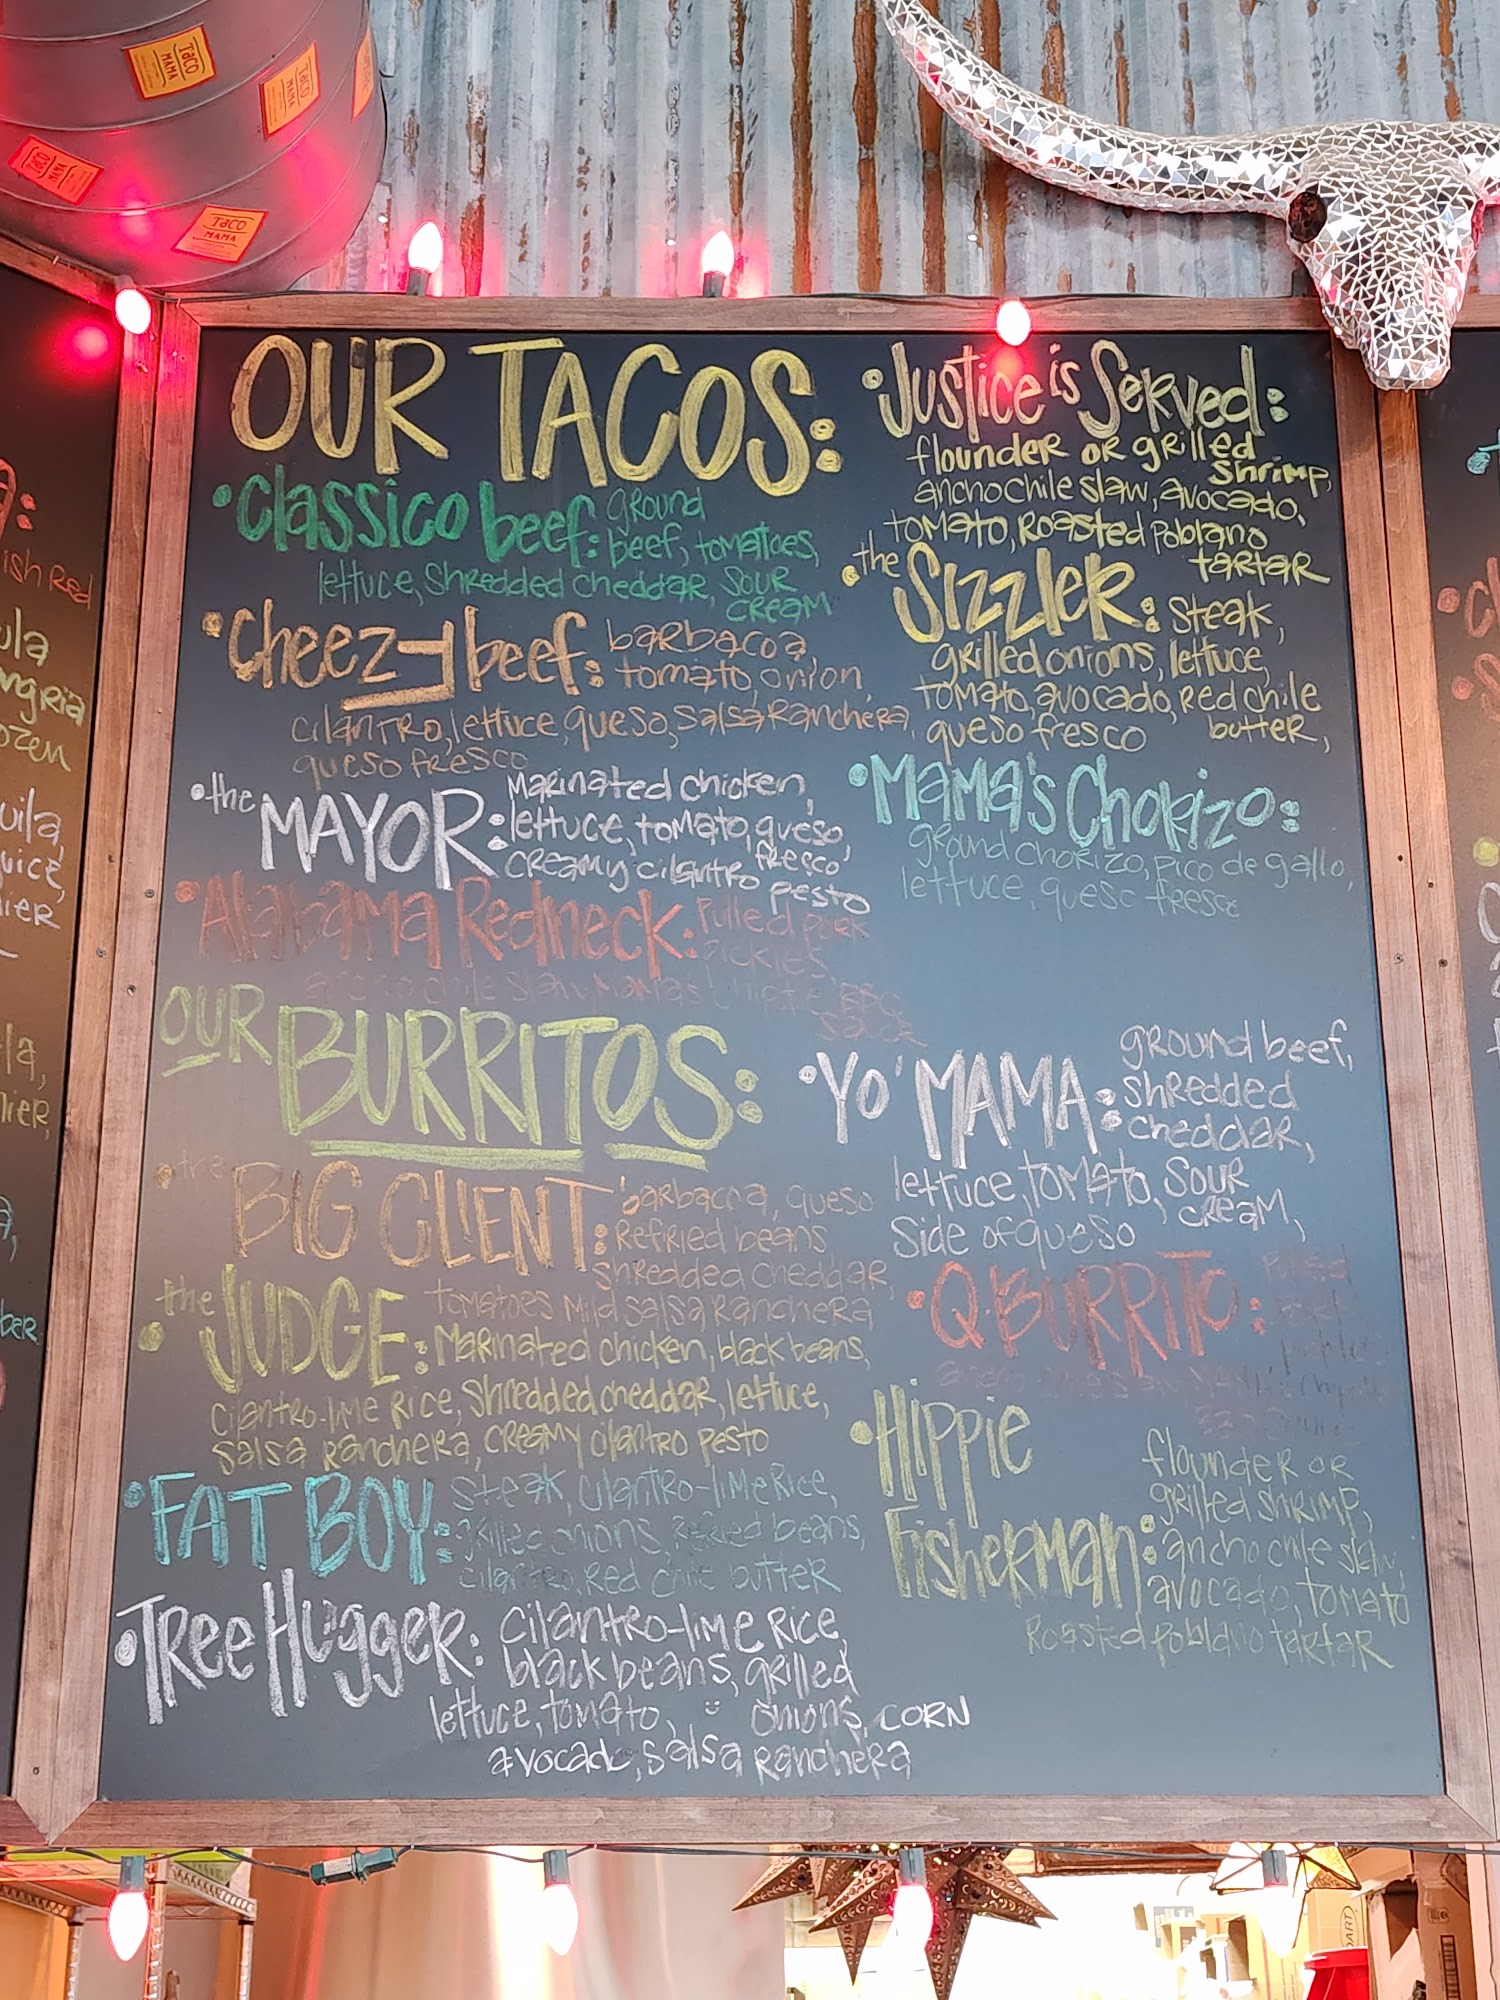 Taco
MAMA
Taco
MAMA
Taco
MAMA
Taco
MAMA
OUR TACOS:
•Classico beef: ground
beef, tomatoes,
lettuce, shredded cheddar, sour
cream
•Cheezy beef: barbacoa
tomato, onion,
cilantro, lettuce, queso, salsa Ranchera,
queso fresco
•the MAYOR: Marinated chicken,
lettuce, tomato, queso,
fresco
creamy cilantro pesto
•Alabama Redneck: Pulled pork
pickles
chile slaw, Mamas BBQ
sauce
•Justice is Served:
flounder or grilled
shrimp,
ancho chile slaw, avocado,
tomato, Roasted Poblano
tartar
•the Sizzler: Steak,
grilled onions, lettuce,
tomato, avocado, Red chile
butter,
queso fresco
•Mama's Chorizo:
ground chorizo, pico de gallo,
lettuce, queso fresco
OUR BURRITOS:
•the BIG CLIENT: barbacoa, queso
Refried beans
shredded cheddar,
tomatoes Mild salsa Ranchera
•the JUDGE: Marinated chicken, black beans,
cilantro-lime Rice, shredded cheddar, lettuce,
salsa Ranchera, creamy cilantro pesto
•FAT BOY: Steak, cilantro-lime Rice,
grilled onions, Refried beans,
cilantro, Red chile butter
•Tree Hugger: cilantro-lime Rice,
black beans, grilled
lettuce, tomato, onions, corn
avocado, salsa Ranchera
•YO' MAMA: ground beef,
shredded
cheddar,
lettuce, tomato, sour
cream,
side of queso
•Q-BURRITO: Pulled
•Hippie
Fisherman: flounder or
grilled shrimp,
ancho chile slaw,
avocado, tomato
Roasted poblano tartar
ish Red
ula
ngria
ozen
uila,
uice,
lier
la,
nier,
ber